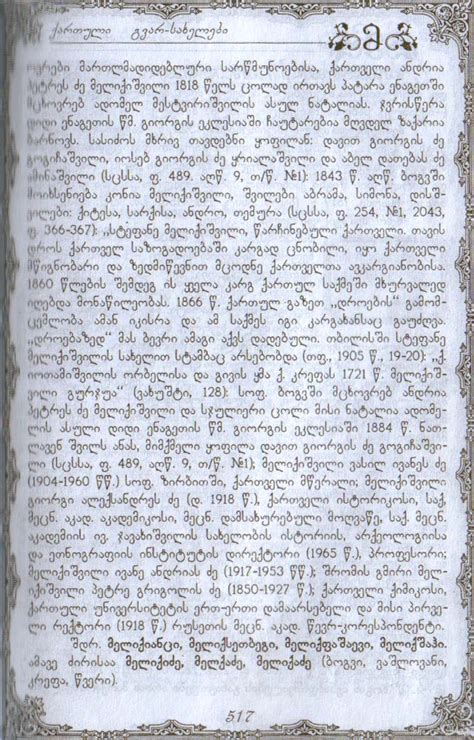 ქართული გვარ-სახელები
მ
მართლმადიდებლური სარწმუნოებისა, ქართველი ანდრია
პეტრეს ძე მელიქიშვილი 1818 წელს ცოლად ირთავს პატარა ენაგეთში
მცხოვრებ ადომელ მესტვირიშვილის ასულ ნატალიას. ჯვრისწერა
დიდი ენაგეთის წმ. გიორგის ეკლესიაში ჩაუტარებია მღვდელ ზაქარია
სასიძოს მხრივ თავდებნი ყოფილან: დავით გიორგის ძე
გოგიჩაშვილი, იოსებ გიორგის ძე ყრიალაშვილი და აბელ დათებას ძე
(სცსსა, ფ. 489. აღწ. 9, თ/წ. №1): 1843 წ. აღწ. ბოგვში
მოიხსენიება კონია მელიქიშვილი, შვილები აბრამა, სიმონა, დისშ-
ვილები: ქიტესა, სარქისა, ანდრო, თემურა (სცსსა, ფ. 254, №1, 2043,
ფ. 366-367); „სტეფანე მელიქიშვილი, წარჩინებული ქართველი. თავის
დროს ქართველ საზოგადოებაში კარგად ცნობილი, იყო ქართველი
მწიგნობარი და ზედმიწევნით მცოდნე ქართველთა ავკარგიანობისა.
1860 წლების შემდეგ ის ყველა კარგ ქართულ საქმეში მხურვალედ
იღებდა მონაწილეობას. 1866 წ. ქართულ გაზეთ „დროების“ გამომ-
ცემლობა ამან იკისრა და ამ საქმეს იგი კარგახანსაც გაუძღვა.
„დროებაზედ“ მას ბევრი ამაგი აქვს დადებული. თბილისში სტეფანე
მელიქიშვილის სახელით სტამბაც არსებობდა (თფ., 1905 წ., 19-20): „ქ.
იოთამიშვილის ორბელისა და გივის ყმა ქ. კრეფას 1721 წ. მელიქიშ-
ვილი გურჯუა“ (ვახუშტი, 128). სოფ. ბოგვში მცხოვრებ ანდრია
პეტრეს ძე მელიქიშვილი და სჯულიერი ცოლი მისი ნატალია ადომე-
ლის ასული დიდი ენაგეთის წმ. გიორგის ეკლესიაში 1884 წ. ნათ-
ლავენ შვილს ანას, მიმქმელი ყოფილა დავით გიორგის ძე გოგიჩაშვი-
ლი (სცსსა, ფ. 489, აღწ. 9, თ/წ. №1); მელიქიშვილი ვასილ ივანეს ძე
(1904-1960 წწ.) სოფ. ზირბითში, ქართველი მწერალი; მელიქიშვილი
გიორგი ალექსანდრეს ძე (დ. 1918 წ.), ქართველი ისტორიკოსი, საქ.
მეცნ. აკად. აკადემიკოსი, მეცნ. დამსახურებული მოღვაწე, საქ. მეცნ.
აკადემიის ივ. ჯავახიშვილის სახელობის ისტორიის, არქეოლოგიისა
და ეთნოგრაფიის ინსტიტუტის დირექტორი (1965 წ.), პროფესორი;
მელიქიშვილი ივანე ანდრიას ძე (1917-1953 წწ.); შრომის გმირი მელი-
ქიშვილი პეტრე გრიგოლის ძე (1850-1927 წ.); ქართველი ქიმიკოსი,
ქართული უნივერსიტეტის ერთ-ერთი დამაარსებელი და მისი პირვე-
ლი რექტორი (1918 წ.) რუსეთის მეცნ. აკად. წევრ-კორესპონდენტი.
შდრ. მელიქიანცი, მელიქსეთბეგი, მელიქფაშაევი, მელიქშაჰი.
ამავე ძირისაა მელიქიძე, მელქაძე, მელიქაძე (ბოგვი, ვაშლოვანი,
კრეფა, წვერი).
517